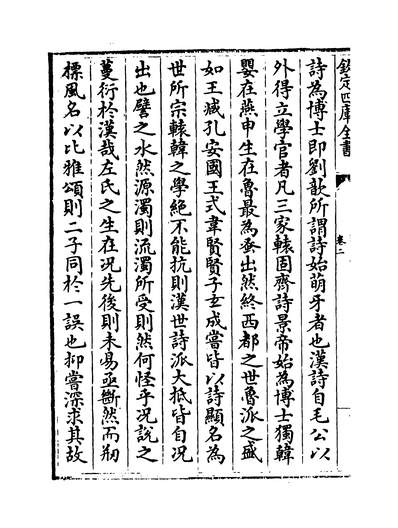 欽定四庫全書
卷二
詩為博士即劉歆所謂詩始萌牙者也漢詩自毛公以
外得立學官者凡三家轅固齊詩景帝始為博士獨韓
嬰在燕申生在魯最為蚤出然終西都之世魯派之盛
如王臧孔安國王式韋賢賢子玄成嘗皆以詩顯名為
世所宗轅韓之學絕不能抗則漢世詩派大抵皆自況
出也譬之水然源濁則流濁所受則然何怪乎況說之
蔓衍於漢哉左氏之生在況先後則未易亟斷然而剏
標風名以比雅頌則二子同於一誤也抑嘗深求其故